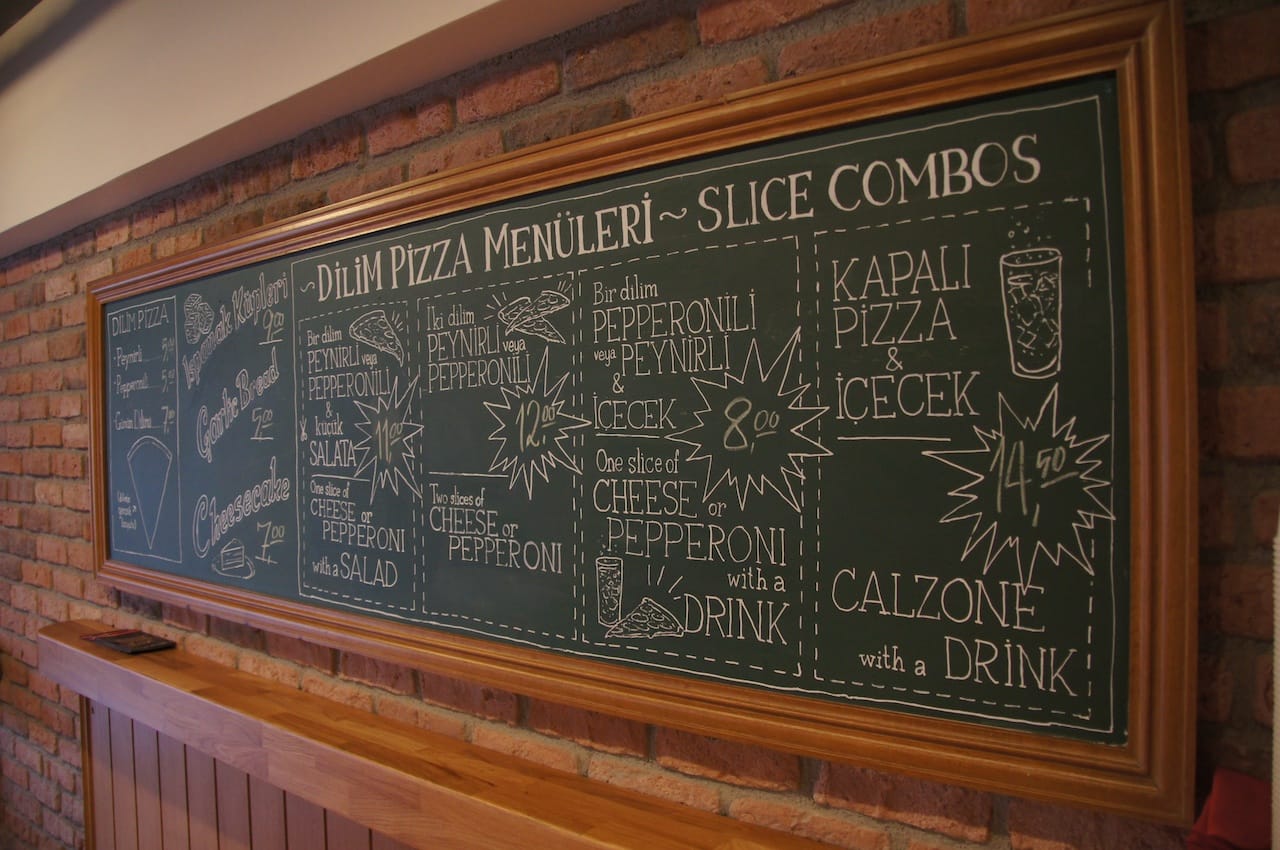 DİLİM PİZZA
- Peynirli
- Pepperonili
Günün Dilimi 7.00
Ispanak Küpleri
9.00
Garlic Bread
5.00
Cheesecake
7.00
~DİLİM PİZZA MENÜLERİ ~ SLICE COMBOS
Bir dilim
PEYNİRLİ veya
PEPPERONİLİ
&
küçük
SALATA
11.00
One slice of
CHEESE or
PEPPERONI
with a SALAD
İki dilim
PEYNİRLİ veya
PEPPERONİLİ
12.00
Two slices of
CHEESE or
PEPPERONI
Bir dilim
PEPPERONİLİ
veya PEYNİRLİ
&
İÇECEK
8.00
One slice of
CHEESE or
PEPPERONI
with a
DRİNK
KAPALI
PİZZA
&
İÇECEK
14,50
CALZONE
with a DRİNK